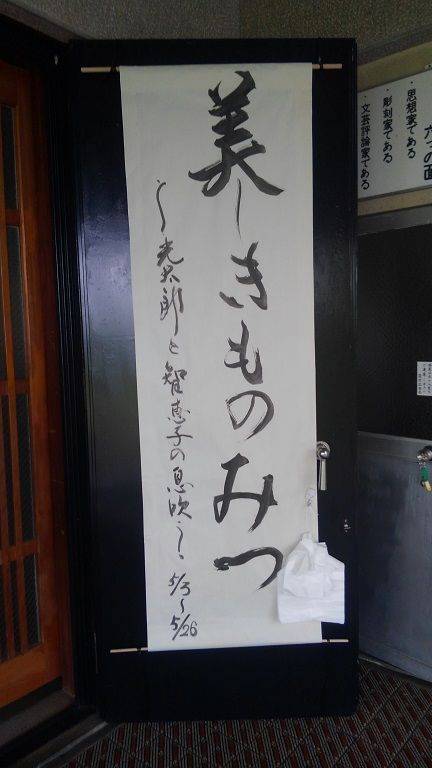 美しきものみつ
〜光太郎と智恵子の息吹〜 5/3〜5/26
六つの面
・思想家である
・彫刻家である
・文芸評論家である